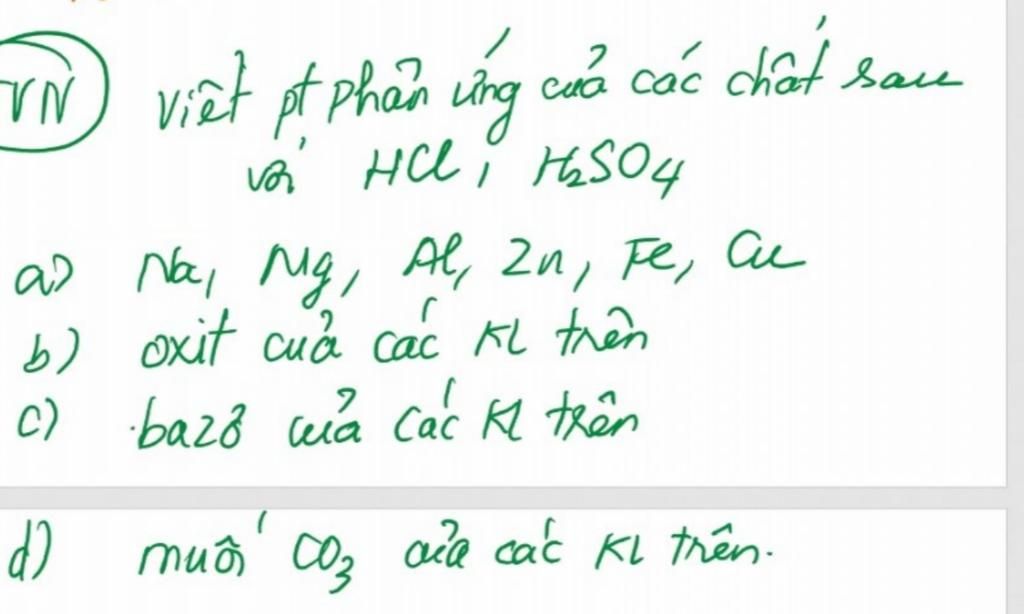 VN
Viết pt phản ứng của các chất sau
với HCl, H₂SO₄
a) Na, Mg, Al, Zn, Fe, Cu
b) oxit của các KL trên
c) bazơ của các Kl trên
d) muối CO₃ của các KL trên.